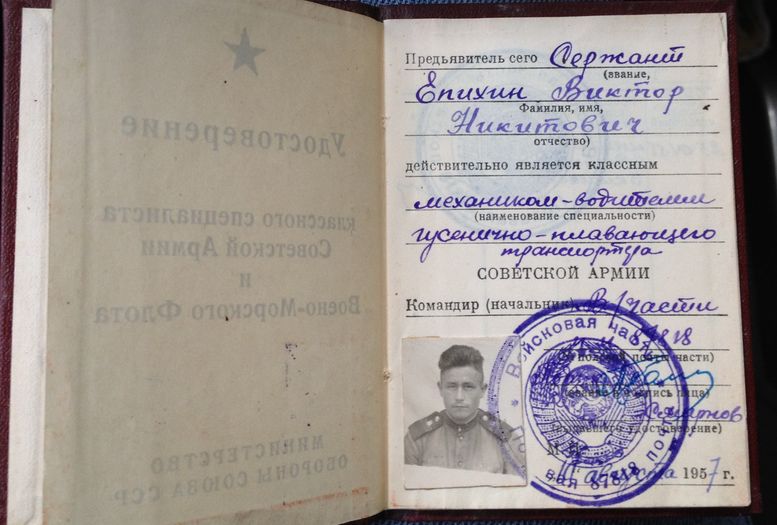 Удостоверение
классного специалиста
Советской Армии
и
Военно-Морского Флота
МИНИСТЕРСТВО
ОБОРОНЫ СОЮЗА ССР
Предъявитель сего Сержант
(звание,
Епихин Виктор
Фамилия, имя,
Никитович
отчество)
действительно является классным
механиком-водителем
(наименование специальности)
гусенично-плавающего
транспортера
СОВЕТСКОЙ АРМИИ
Командир (начальник) в/части
81818
(№ полевой почты части)
(звание и подпись лица)
(выдавшего удостоверение)
М. П.
11 августа 1957 г.
Войсковая часть
полевая почта 81818